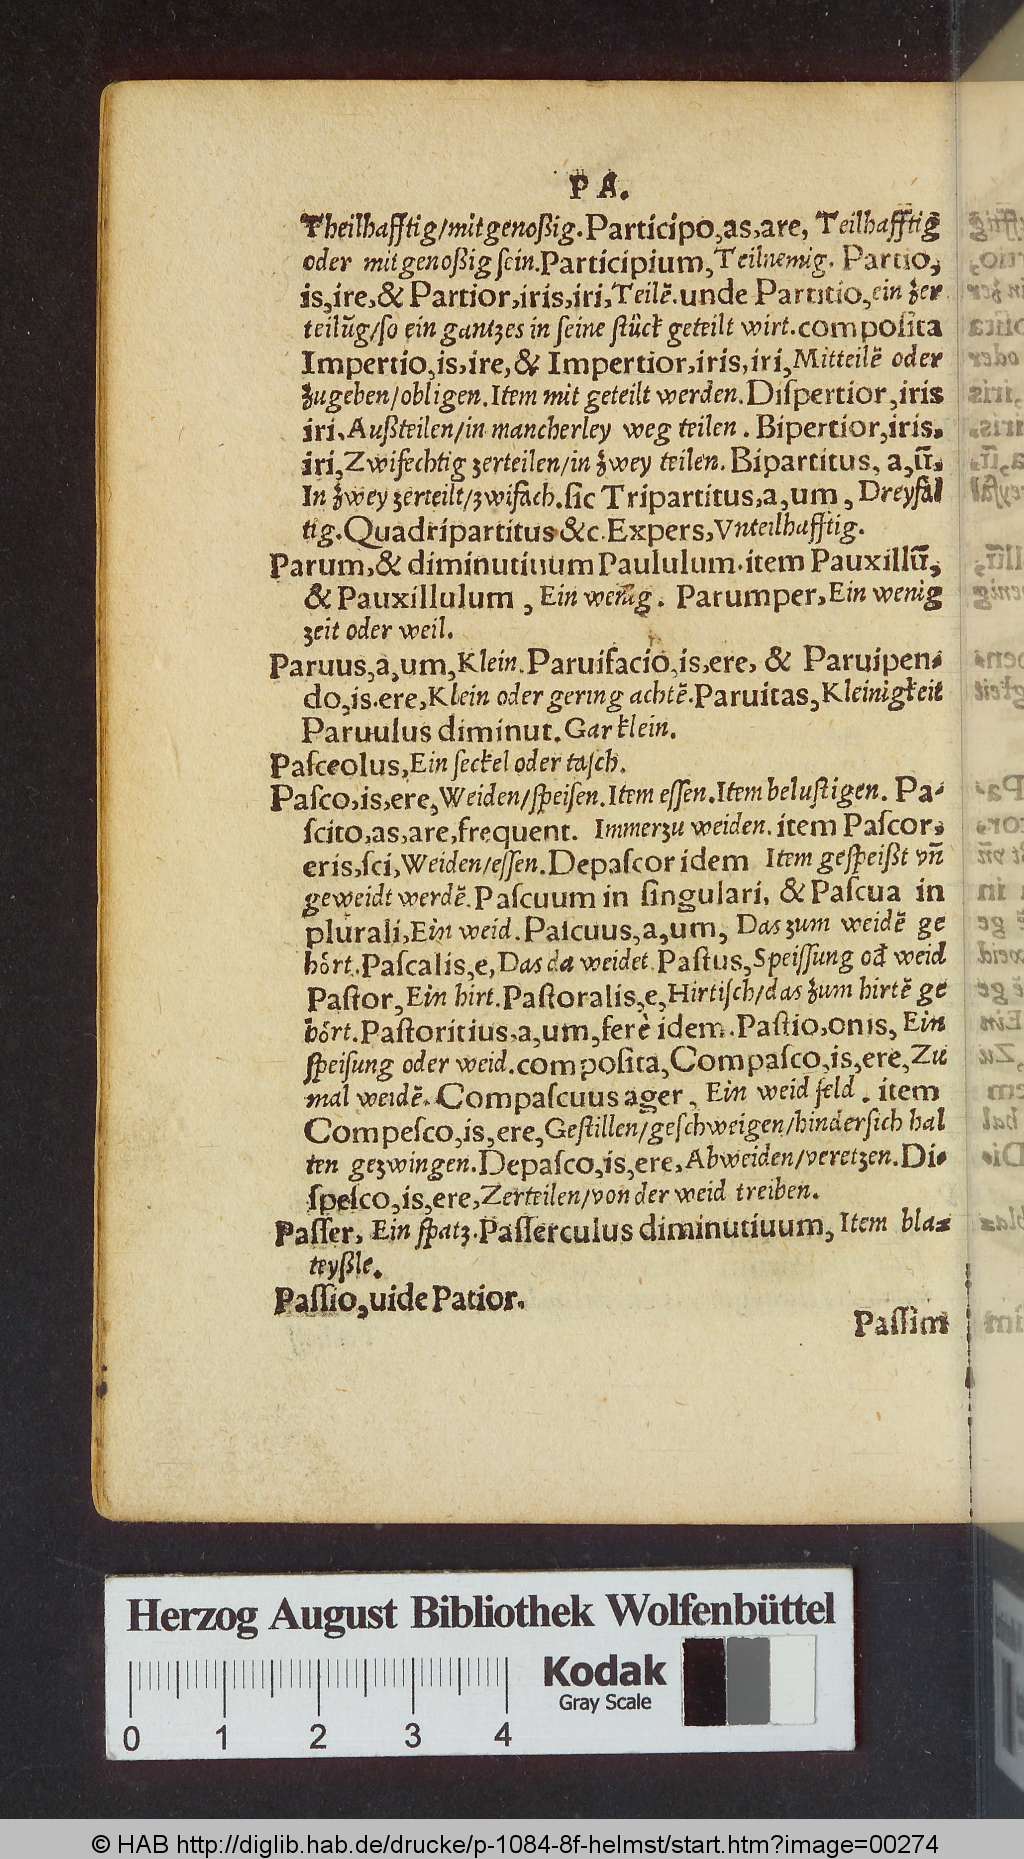 P A.
Theilhafftig/mitgenoßig. Participo,as,are, Teilhafftig̃
oder mitgenoßig sein. Participium, Teilnemig. Partio,
is,ire,& Partior,iris,iri, Teilẽ. unde Partitio, ein zer
teilũg/so ein gantzes in seine stück geteilt wirt. composita
Impertio,is,ire,& Impertior,iris,iri, Mitteilẽ oder
zugeben/obligen. Item mit geteilt werden. Diſpertior,iris
iri, Außteilen/in mancherley weg teilen. Bipertior,iris,
iri, Zwifechtig zerteilen/in zwey teilen. Bipartitus, a,ũ,
In zwey zerteilt/zwifach. ſic Tripartitus,a,um, Dreyfäl
tig. Quadripartitus &c. Expers, Vnteilhafftig.
Parum,& diminutiuum Paululum. item Pauxillũ,
& Pauxillulum, Ein wenig. Parumper, Ein wenig
zeit oder weil.
Paruus,a,um, Klein. Paruifacio,is,ere, & Paruipen-
do,is.ere, Klein oder gering achtẽ. Paruitas, Kleinigkeit
Paruulus diminut. Gar klein.
Paſceolus, Ein ſeckel oder taſch.
Paſco,is,ere, Weiden/ſpeiſen. Item eſſen. Item beluſtigen. Pa-
ſcito,as,are,frequent. Immerzu weiden. item Paſcor,
eris,ſci, Weiden/eſſen. Depaſcor idem Item geſpeißt vñ
geweidt werdẽ. Paſcuum in ſingulari, & Paſcua in
plurali, Ein weid. Paſcuus,a,um, Das zum weidẽ ge
hört. Paſcalis,e, Das da weidet. Paſtus, Speiſſung od̃ weid
Paſtor, Ein hirt. Paſtoralis,e, Hirtiſch/das zum hirtẽ ge
hört. Paſtoritius,a,um,ferè idem. Paſtio,onis, Ein
ſpeiſung oder weid. compoſita, Compaſco,is,ere, Zu
mal weidẽ. Compaſcuus ager, Ein weid feld. item
Compeſco,is,ere, Geſtillen/geſchweigen/hinderſich hal
ten gezwingen. Depaſco,is,ere, Abweiden/veretzen. Di-
ſpeſco,is,ere, Zerteilen/von der weid treiben.
Paſſer, Ein ſpatz. Paſſerculus diminutiuum, Item bla-
teyßle.
Paſſio, uide Patior.
Paſſim
Herzog August Bibliothek Wolfenbüttel
Kodak
Gray Scale
0 1 2 3 4
© HAB http://diglib.hab.de/drucke/p-1084-8f-helmst/start.htm?image=00274